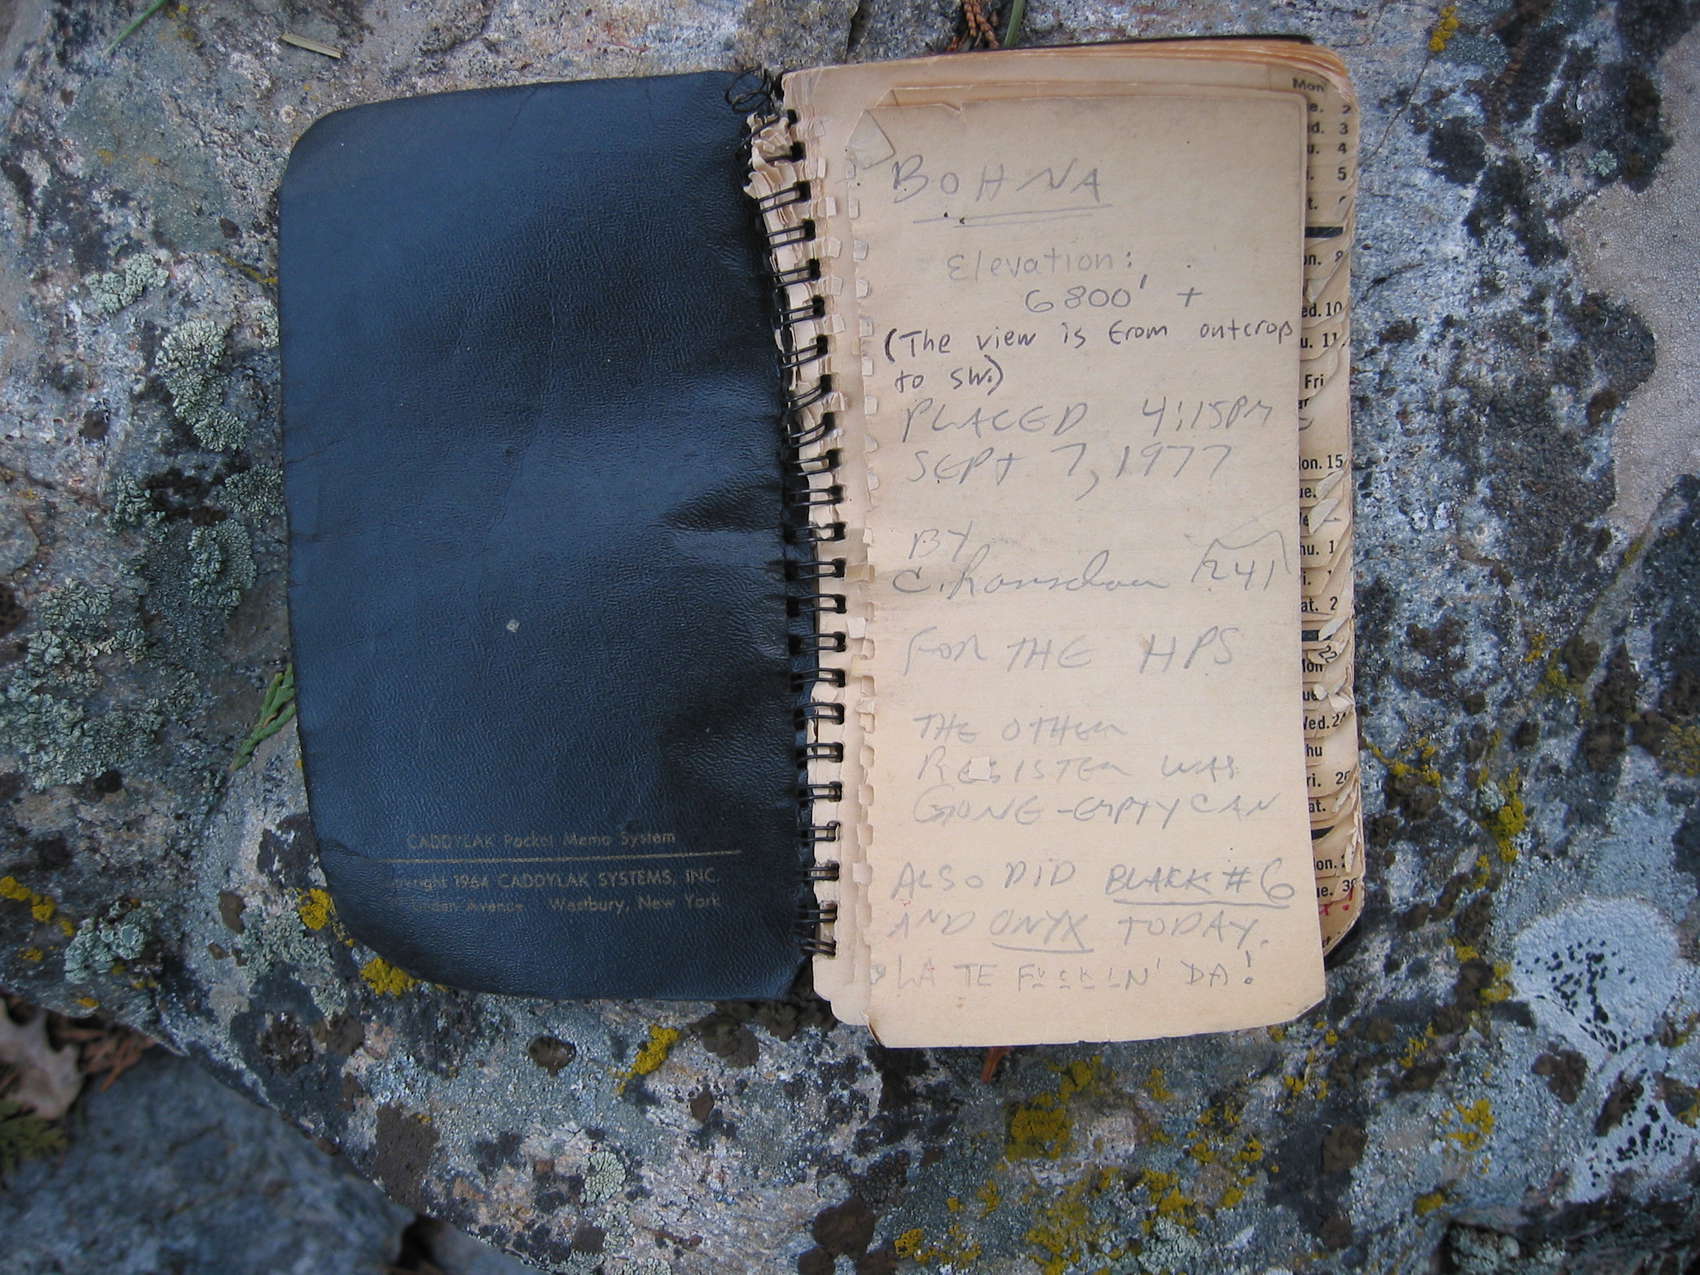 CADDYLAK Pocket Memo System
1964 CADDYLAK SYSTEMS, INC.
Avenue Westbury, New York
BOHNA
Elevation:
6800' +
(The view is from outcrop
to SW.)
PLACED 4:15PM
SEPT 7, 1977
BY
C.
FOR THE HPS
THE OTHER
REGISTER WAS
GONE - EMPTY CAN
ALSO DID BLACK #6
AND ONYX TODAY.
LATE FUCKIN' DA!
Mon
3
4
5
8
Wed. 10
11
Fri
Mon. 15
Mon
Wed. 24
Thu
Fri. 26